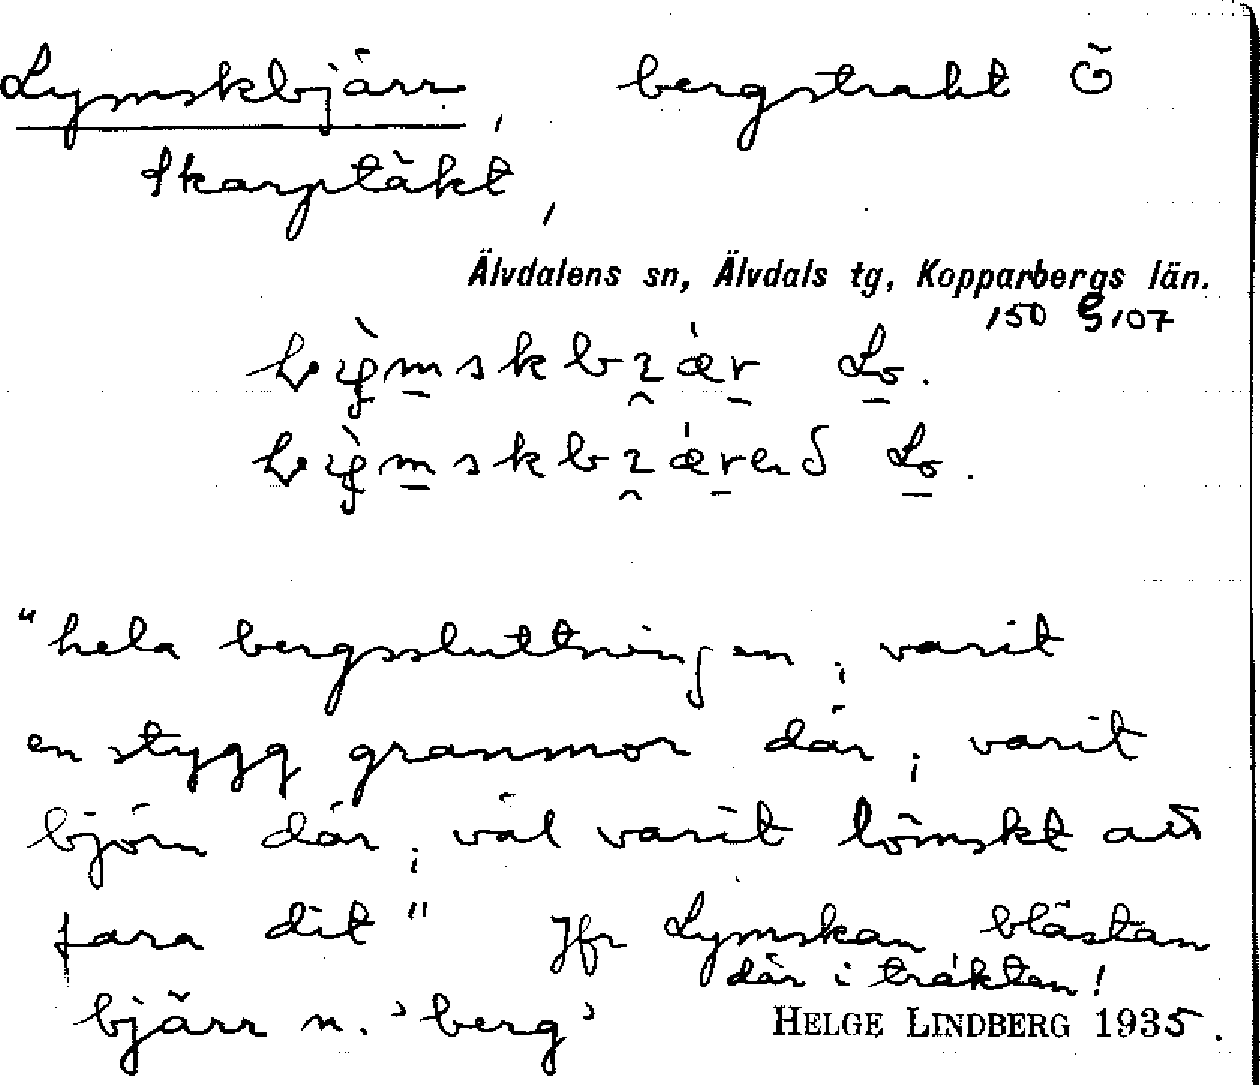 Lymskbjärr, bergstrakt Ö
Skarptäkt,
Älvdalens sn, Älvdals tg, Kopparbergs län.
150 G107
Lo.
Lo.
"hela bergssluttningen; varit
en stygg granmor där; varit
björn där; väl varit lömskt att
fara dit" Jfr Lymskan blästan
där i trakten!
bjärr n. 'berg' HELGE LINDBERG 1935.